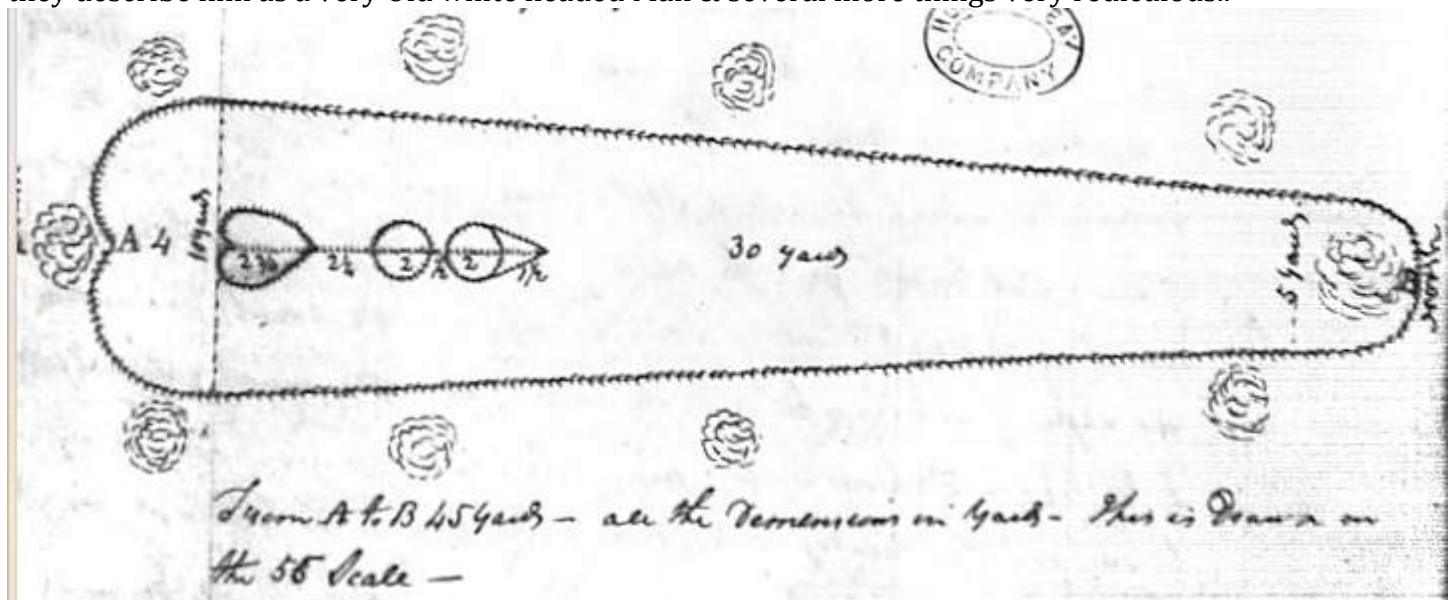 they describe him as a very old white headed Man & several more things very rediculous..
COMPANY
A 4
10 yards
2 ¾
2 ¼
2
½
2
1 ½
30 yards
5 yards
B
North
From A to B 45 Yards — all the Demensions in Yards — This is Drawn on
the 55 Scale —